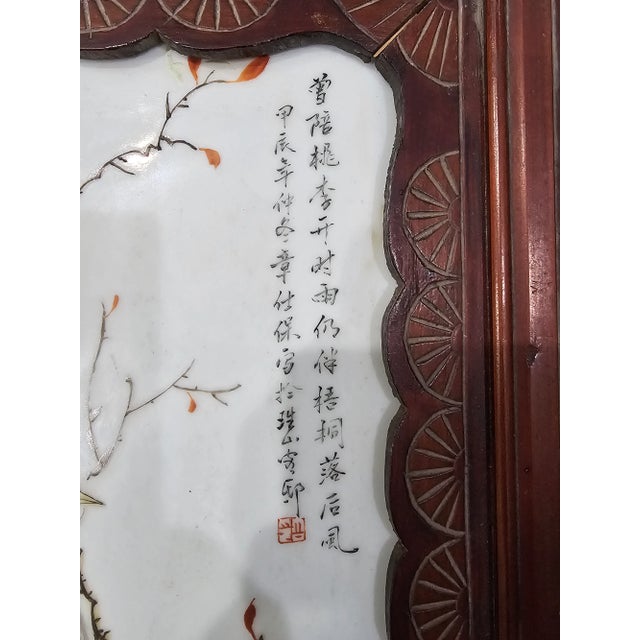 曾陪桃李开时雨仍伴梧桐落后风
甲辰年仲冬章仕保写於珠山客邸